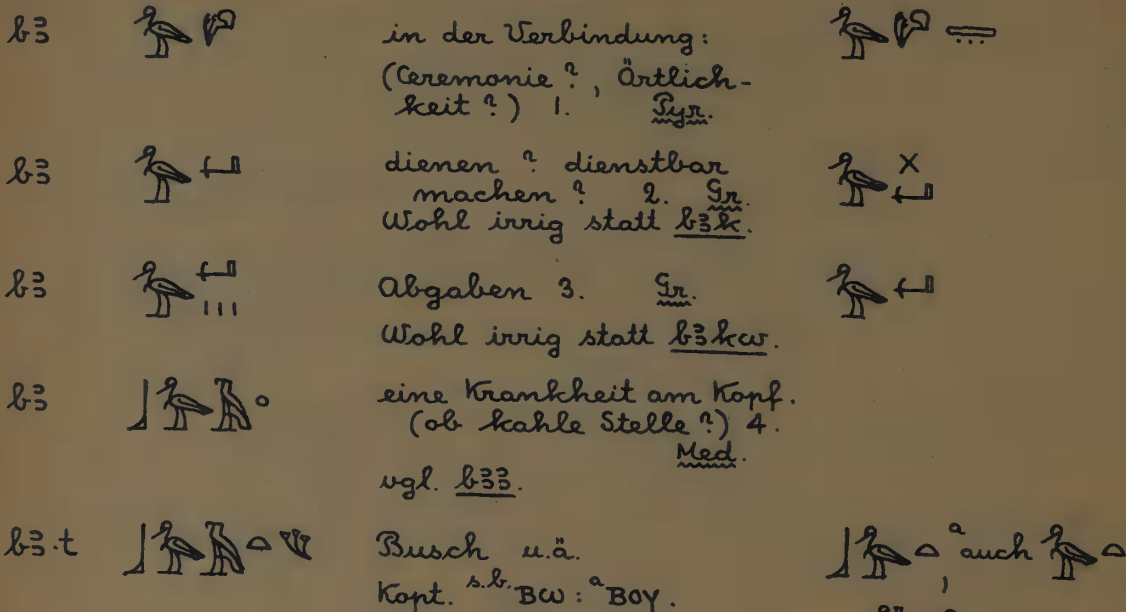 bꜣ in der Verbindung:
(Ceremonie?, Örtlich-
keit?) 1. Pyr.
bꜣ dienen? dienstbar
machen? 2. Gr.
Wohl irrig statt bꜣk.
bꜣ Abgaben 3. Gr.
Wohl irrig statt bꜣkw.
bꜣ eine Krankheit am Kopf.
(ob kahle Stelle?) 4.
Med.
vgl. bꜣꜣ.
bꜣ.t Busch u.ä. a auch
Kopt. s.b. ⲃⲱ: a ⲃⲟⲩ.